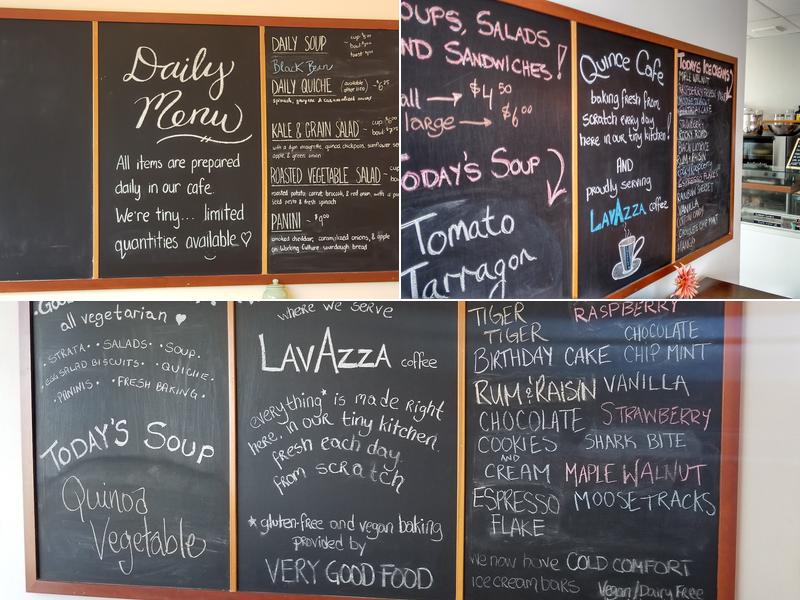 Daily
Menu
All items are prepared
daily in our cafe.
We're tiny.... limited
quantities available.♡
DAILY SOUP
Black Bean
DAILY QUICHE
KALE & GRAIN SALAD
apple, & green onion
ROASTED VEGETABLE SALAD
roasted potato, carrot, broccoli, & red onion, with a
seed pesto & fresh spinach
PANINI ~ $9.00
smoked cheddar, caramelized onions, & apple
on Working Culture sourdough bread
OUPS, SALADS
ND SANDWICHES!
all → $4.50
large → $6.00
ODAY'S SOUP
Tomato
Tarragon
Quince Cafe
baking fresh from
scratch every day
here in our tiny kitchen!
AND
proudly serving
LAVAZZA coffee
TODAY'S ICE CREAMS
MAPLE WALNUT
BIRTHDAY CAKE
ROCKY ROAD
RUM & RAISIN
ESPRESSO FLAKES
VANILLA
COTTON CANDY
CHOCOLATE CHIP MINT
MANGO
all vegetarian ♥
• STRATA • • SALADS • • SOUP •
• EGG SALAD BISCUITS • • QUICHE •
• PANINIS • • FRESH BAKING •
TODAY'S SOUP
Quinoa
Vegetable
where we serve
LAVAZZA coffee
everything* is made right
here, in our tiny kitchen.
fresh each day.
from scratch
* gluten-free and vegan baking
provided by
VERY GOOD FOOD
TIGER RASPBERRY
TIGER CHOCOLATE
BIRTHDAY CAKE CHIP MINT
RUM & RAISIN VANILLA
CHOCOLATE STRAWBERRY
COOKIES SHARK BITE
AND
CREAM MAPLE WALNUT
ESPRESSO MOOSETRACKS
FLAKE
We now have COLD COMFORT
ice cream bars Vegan/Dairy Free